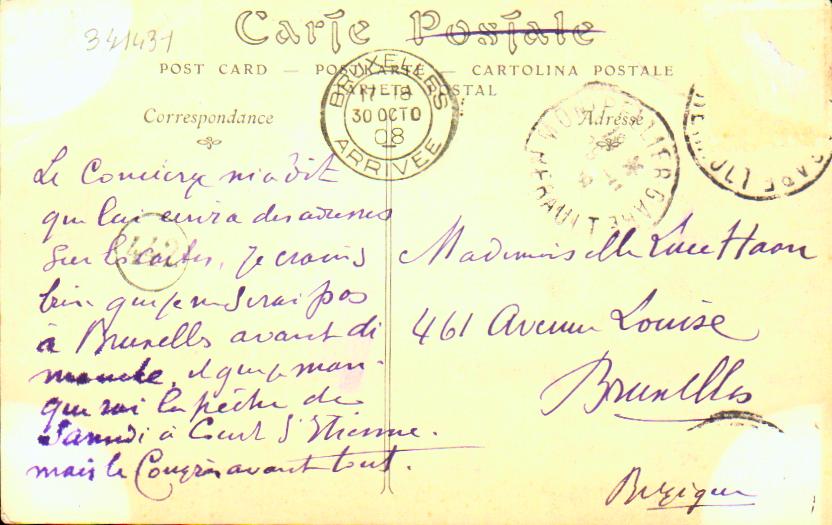 341431
Carte Postale
POST CARD — POSTKARTE — CARTOLINA POSTALE
TARJETA POSTAL
Correspondance
Adresse
BRUXELLES
17-18
30 OCTO
08
ARRIVÉE
MONTPELLIER GARE
HERAULT
GARE
442
Le Concierge m'a dit
que lui enverra des adresses
sur les cartes, je crains
bien que je ne serai pas
à Bruxelles avant di
manche, et que je man-
querai la pêche de
Samedi à Court St Etienne.
mais le Congrès avant tout.
Mademoiselle Luce Haon
461 Avenue Louise
Bruxelles
Belgique